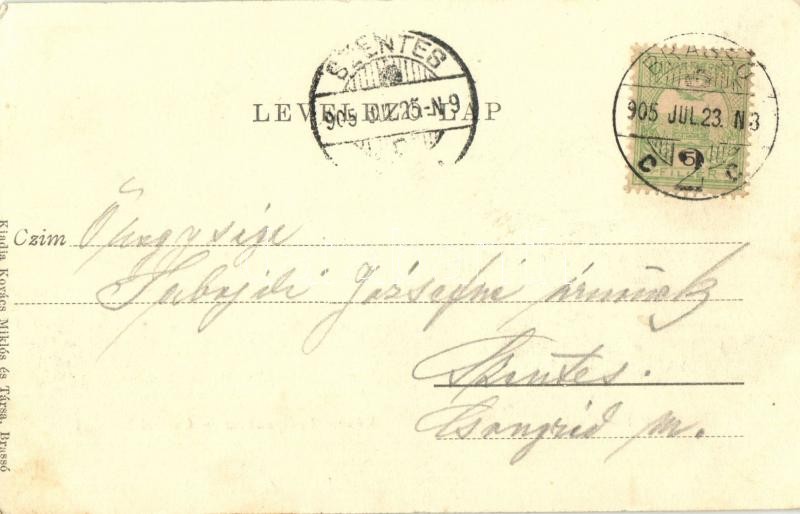 SZENTES
905 JUL. 25-N 9
LEVELEZŐ-LAP
BRASSÓ
905 JUL. 23. N 3
C 2 C
5
FILLÉR
Czim Őnagysága
Józsefné úrnőnek
Szentes.
Csongrád m.
Kiadja Kovács Miklós és Társa, Brassó